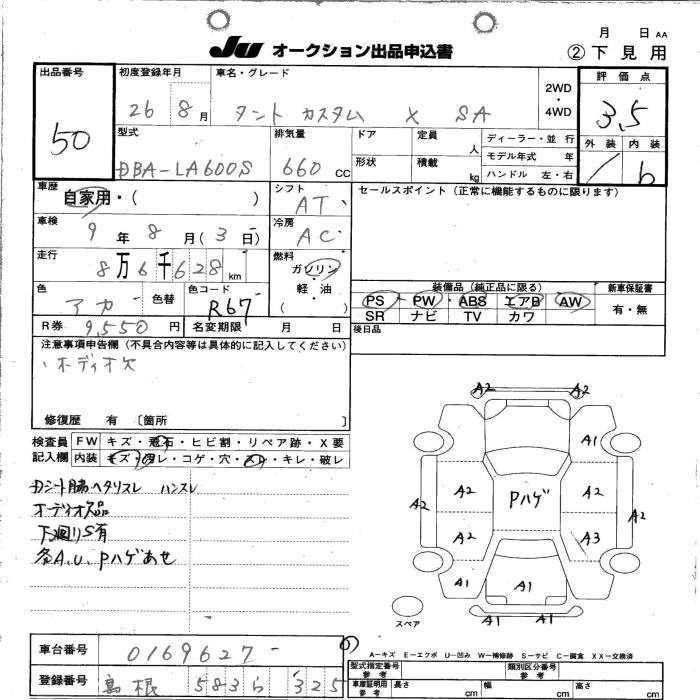 月 日 AA
JU オークション出品申込書
② 下見用
出品番号 50
初度登録年月 26 8月
車名・グレード タント カスタム X SA
2WD・4WD
評価点 3.5
外装 内装 b
型式 DBA-LA600S
排気量 660 CC
ドア 形状
定員 人 積載 kg
ディーラー・並行
モデル年式 年
ハンドル 左・右
車歴 自家用・( )
シフト AT
セールスポイント (正常に機能するものに限ります)
車検 9年 8月 (3日)
冷房 AC
走行 8万6千628 km
燃料 ガソリン・軽油 ( )
色 アカ 色替
色コード R67
装備品 (純正品に限る)
新車保証書 有・無
PS・PW・ABS・エアB・AW
SR ナビ TV カワ
R券 9,550円
名変期限 月 日
後日品
注意事項申告欄 (不具合内容等は具体的に記入してください)
・オーディオ欠
修復歴 有 〔箇所 〕
検査員記入欄
FW キズ・飛石・ヒビ割・リペア跡・X要
内装 キズ・汚レ・コゲ・穴・スレ・キレ・破レ
Dシート脇ヘタリスレ ハンスレ
オーディオ欠品
下廻りS有
各A.U.Pハゲあせ
A2 A2
A1
A2 A2 Pハゲ A2 A2
A2 A3
A1 A1 A1
A1
スペア
車台番号 0169627
A-キズ E-エクボ U-凹み W-補修跡 S-サビ C-腐食 XX-交換済
登録番号 島根 583 ら 325
型式指定番号 参考
類別区分番号 参考
車庫証明用 参考 長さ cm 幅 cm 高さ cm